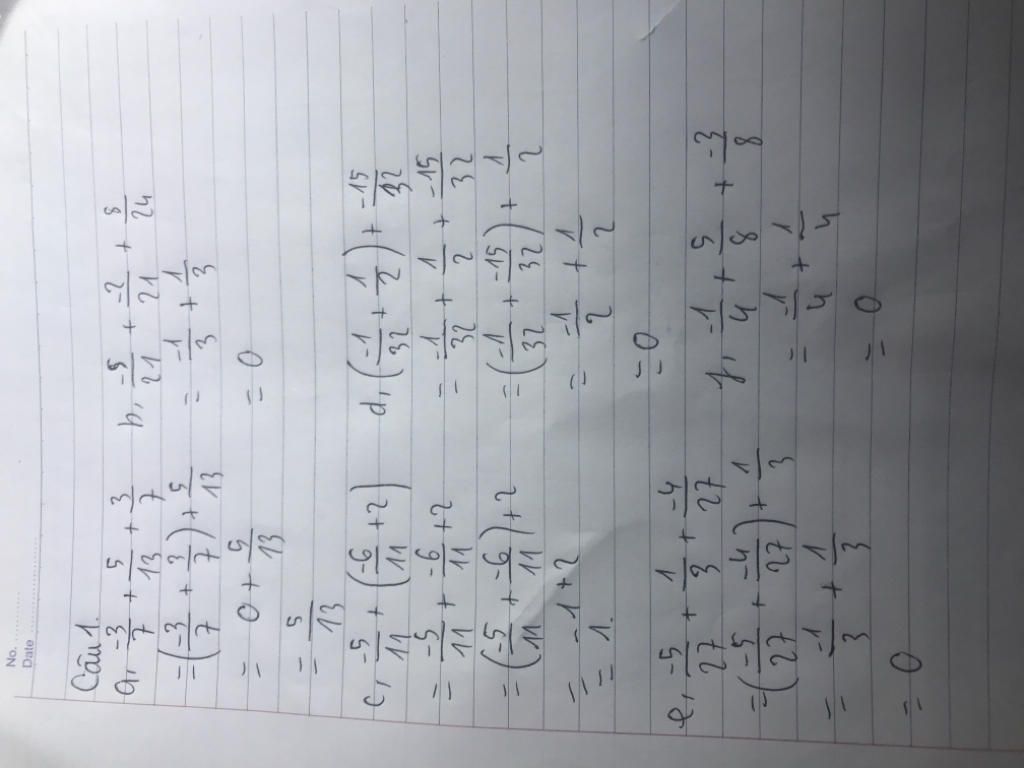 No.
Date
Câu 1.
a, -3/7 + 5/13 + 3/7
= (-3/7 + 3/7) + 5/13
= 0 + 5/13
= 5/13
b, -5/21 + -2/21 + 8/24
= -1/3 + 1/3
= 0
c, -5/11 + (-6/11 + 2)
= -5/11 + -6/11 + 2
= (-5/11 + -6/11) + 2
= -1 + 2
= 1.
d, (-1/32 + 1/2) + -15/32
= -1/32 + 1/2 + -15/32
= (-1/32 + -15/32) + 1/2
= -1/2 + 1/2
= 0
e, -5/27 + 1/3 + -4/27
= (-5/27 + -4/27) + 1/3
= -1/3 + 1/3
= 0
f, -1/4 + 5/8 + -3/8
= -1/4 + 1/4
= 0